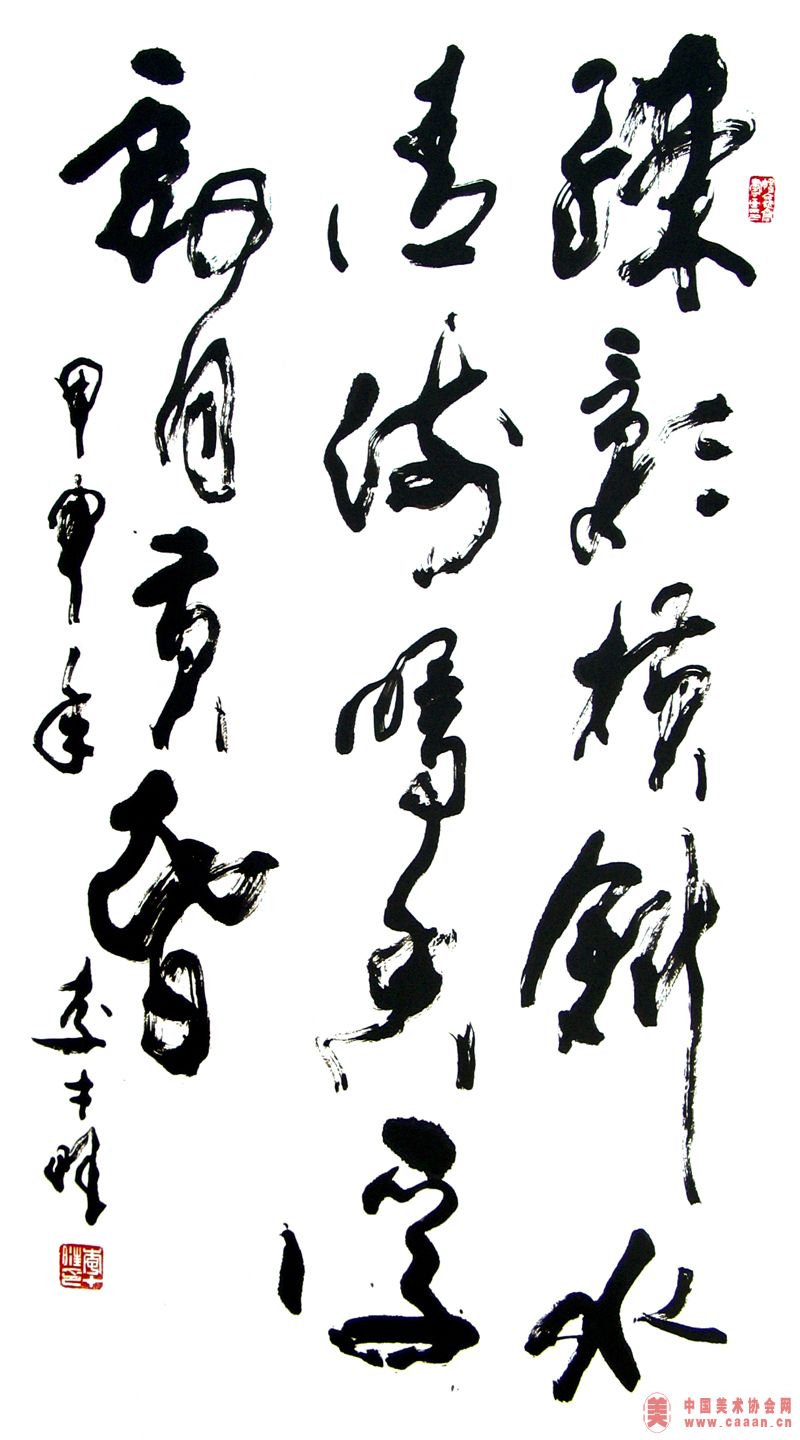 疎影横斜水
清浅暗香浮
動月黄昏
甲申年
李士
美
中国美术协会网
www.caaan.cn